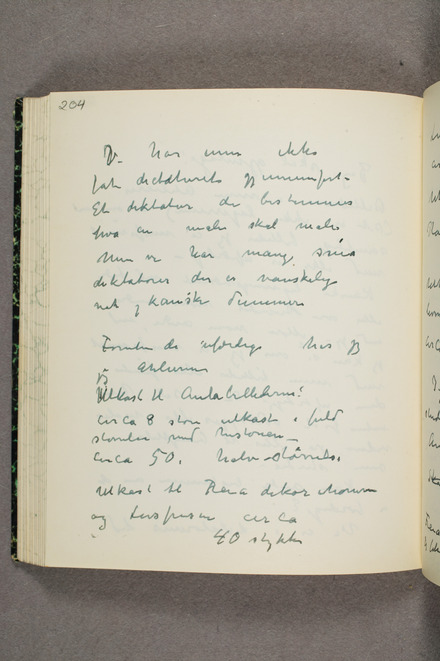 204
Jo har enn ikke
fåt dictaturets gjennemført.
Et diktatur der bestemmes
hva en maler skal male
Men vi har mange små
diktatorer der er vanskelige
nok, kanske dummere
Foruten de uferdige har jeg
Utkast til Aulabillederne:
circa 8 store utkast i fuld
størrelse med Historien
circa 50, halv-størrelse,
utkast til Freia dekorationerne
og circa
40 stykker